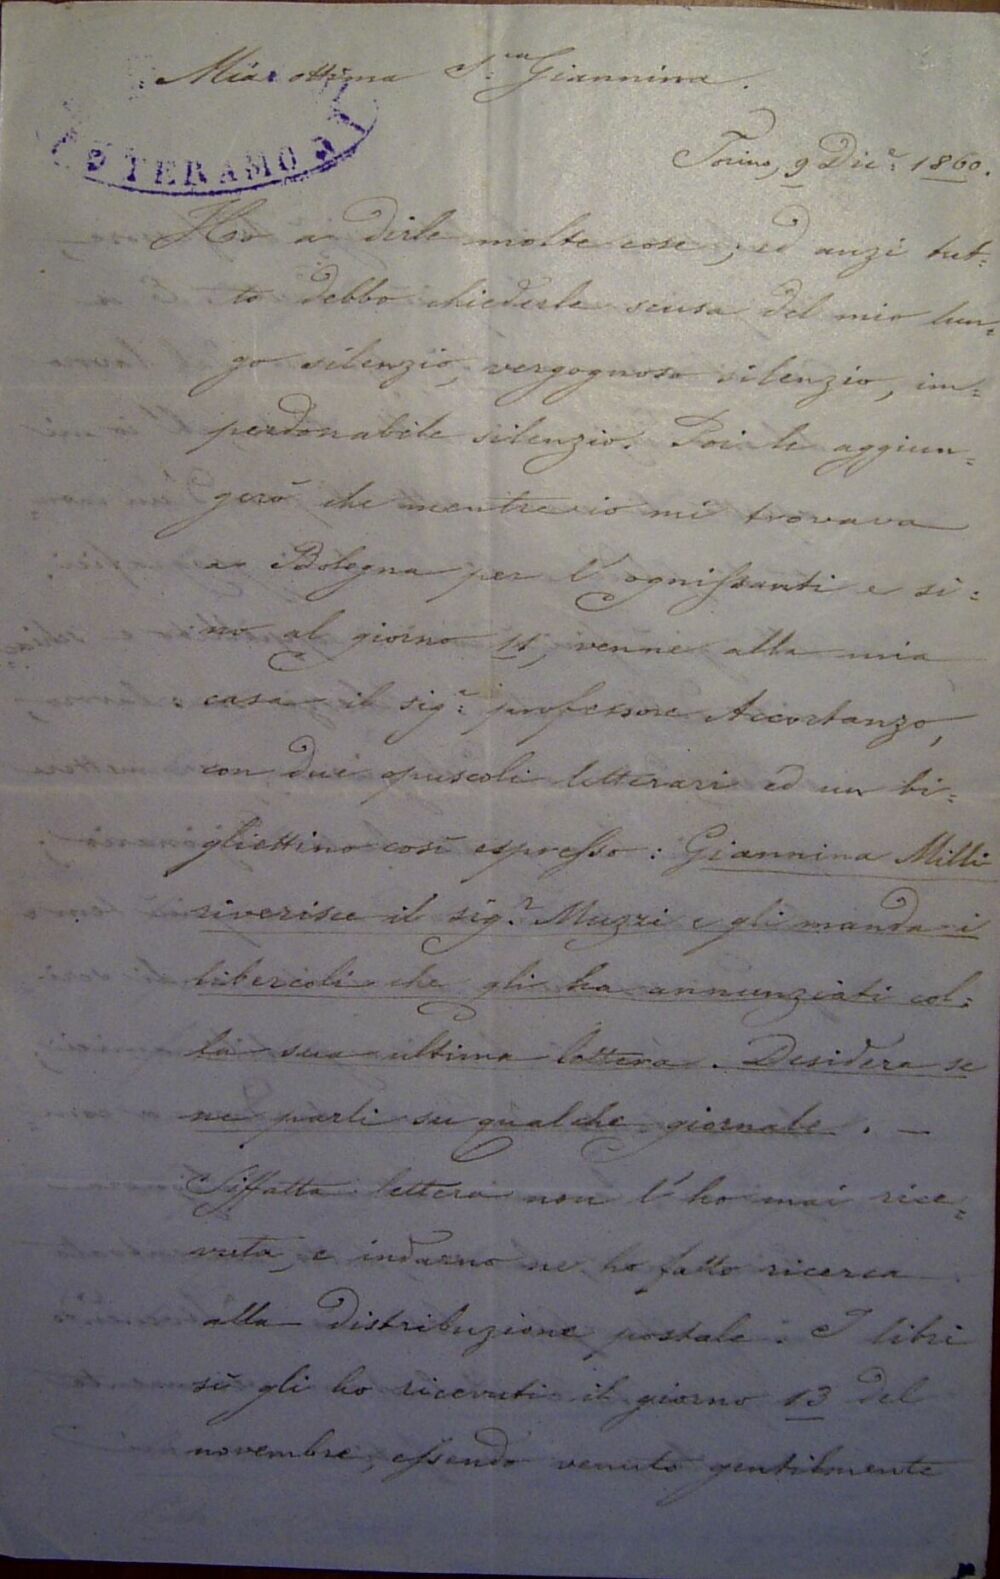 Mia ottima S.ra Giannina.
TERAMO
Torino, 9 Dic.e 1860.
Ho a dirle molte cose; ed anzi tut=
to debbo chiederle scusa del mio lun=
go silenzio, vergognoso silenzio, im=
perdonabile silenzio. Poi le aggiun=
gerò che mentre io mi trovava
a Bologna per l'ognissanti e si=
no al giorno 11, venne alla mia
casa il sig.r professore
con due opuscoli letterari ed un bi=
gliettino così espresso: Giannina Milli
riverisce il sig.r Muzzi e gli manda i
libercoli che gli ha annunziati col=
la sua ultima lettera. Desidera se
ne parli su qualche giornale. —
Siffatta lettera non l'ho mai rice=
vuta, e indarno ne ho fatto ricerca
alla distribuzione postale. I libri
sì gli ho ricevuti il giorno 13 del
novembre, essendo venuto gentilmente